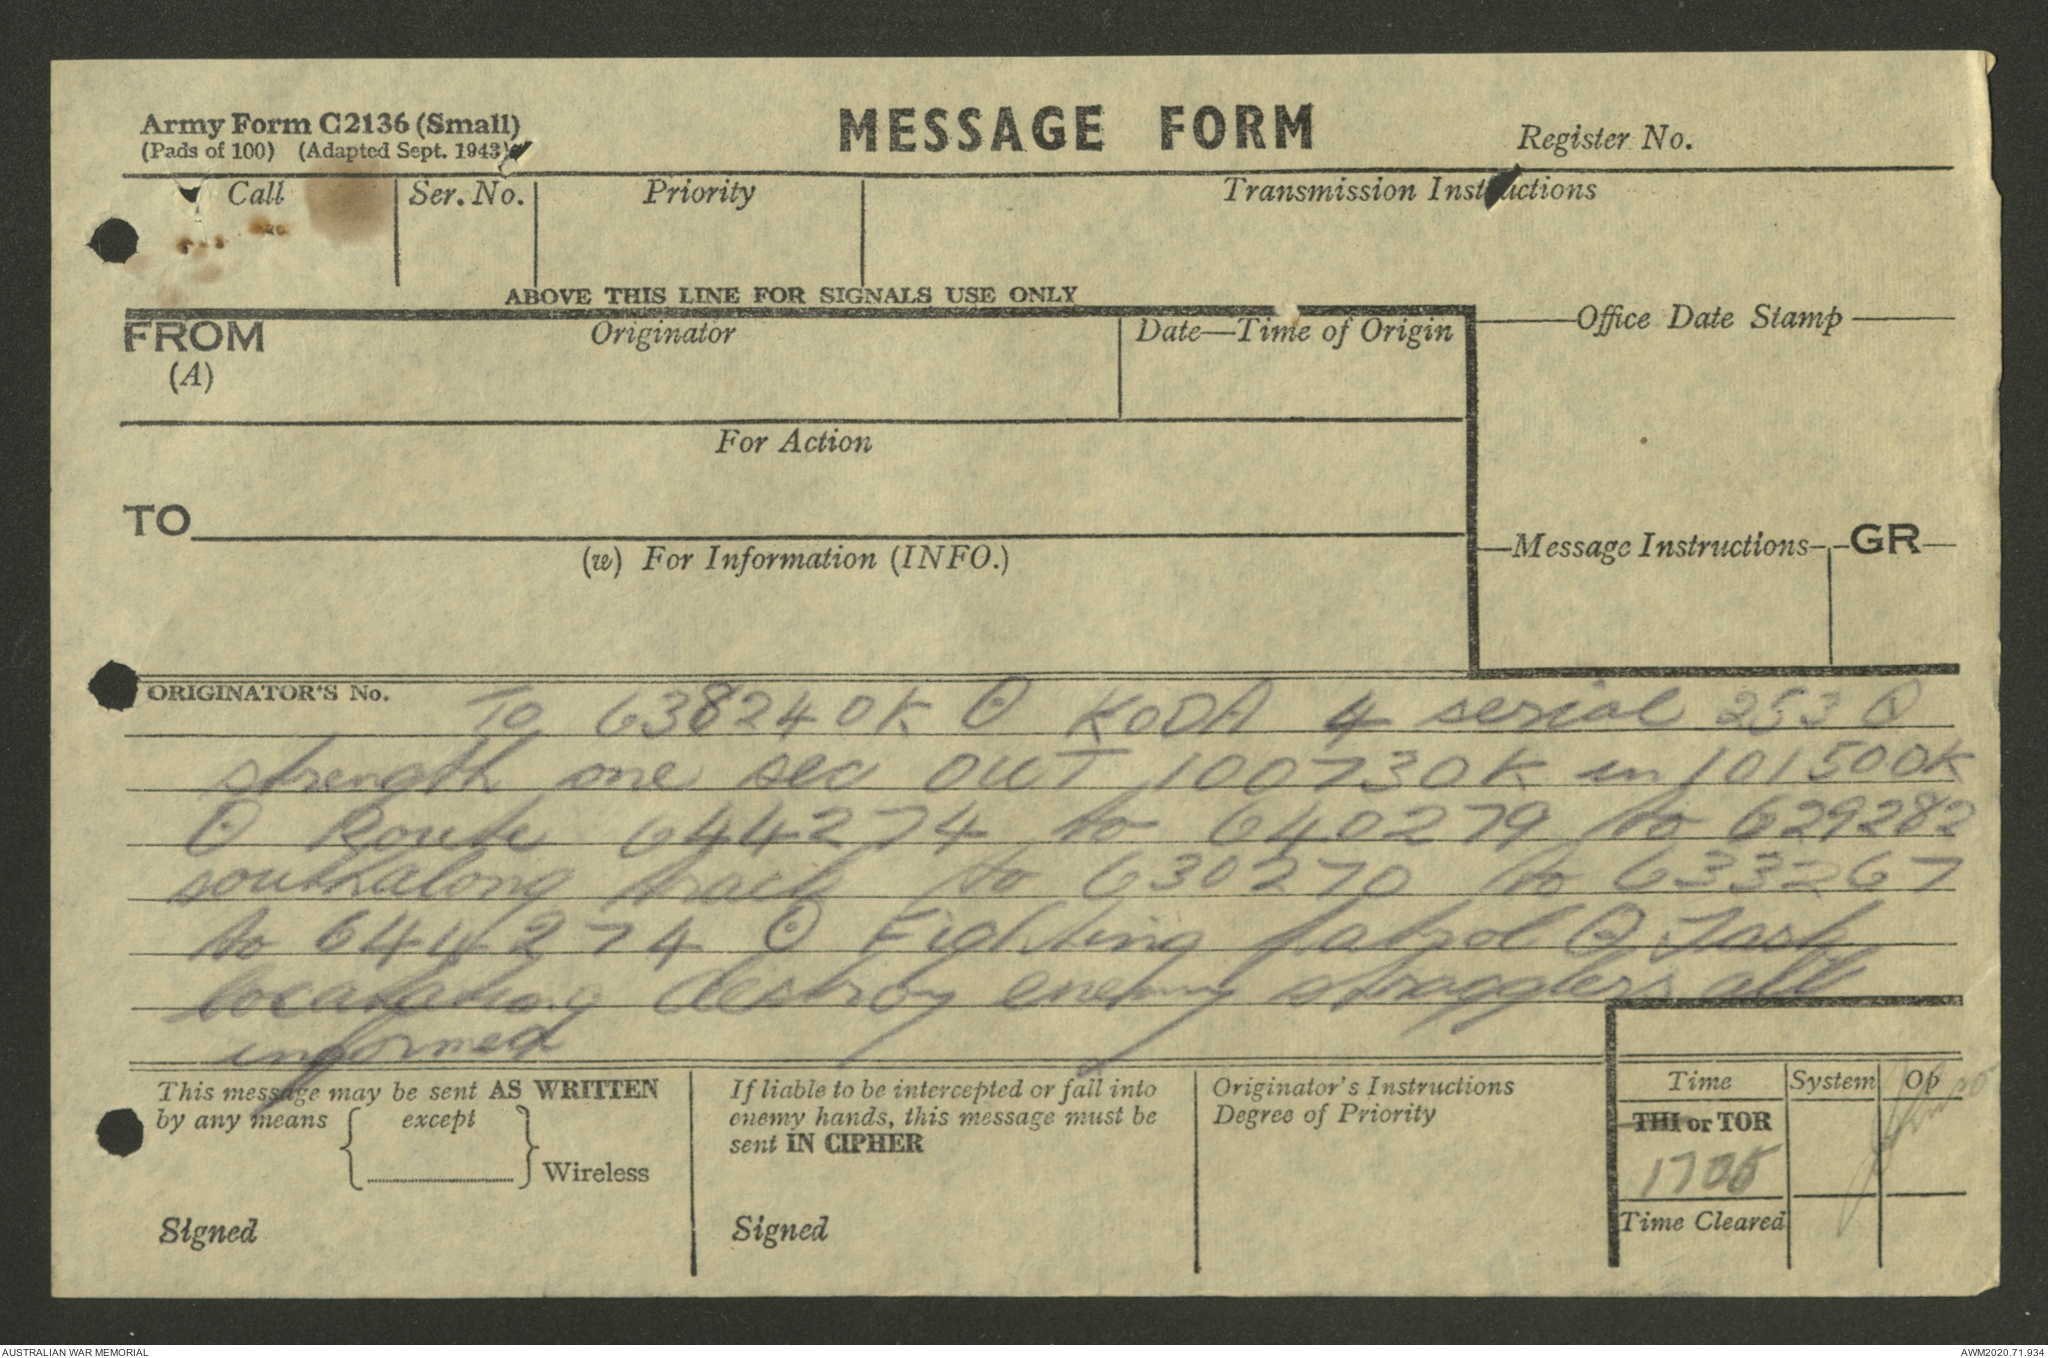 Army Form C2136 (Small)
(Pads of 100) (Adapted Sept. 1943)
MESSAGE FORM
Register No.
Call
Ser. No.
Priority
Transmission Instructions
ABOVE THIS LINE FOR SIGNALS USE ONLY
FROM
(A)
Originator
Date—Time of Origin
Office Date Stamp
For Action
TO
(w) For Information (INFO.)
Message Instructions
GR
ORIGINATOR'S No.
To 638240K ⊙ KODA 4 serial 253 ⊙
strength one sec OUT 100730K in 101500K
⊙ Route 644274 to 640279 to 629282
south along track to 630270 to 633267
to 644274 ⊙ Fighting patrol ⊙ Task
destroy enemy stragglers all
informed
This message may be sent AS WRITTEN
by any means except
Wireless
Signed
If liable to be intercepted or fall into
enemy hands, this message must be
sent IN CIPHER
Signed
Originator's Instructions
Degree of Priority
Time
System
Op
THI or TOR
1705
Time Cleared
AUSTRALIAN WAR MEMORIAL
AWM2020.71.934